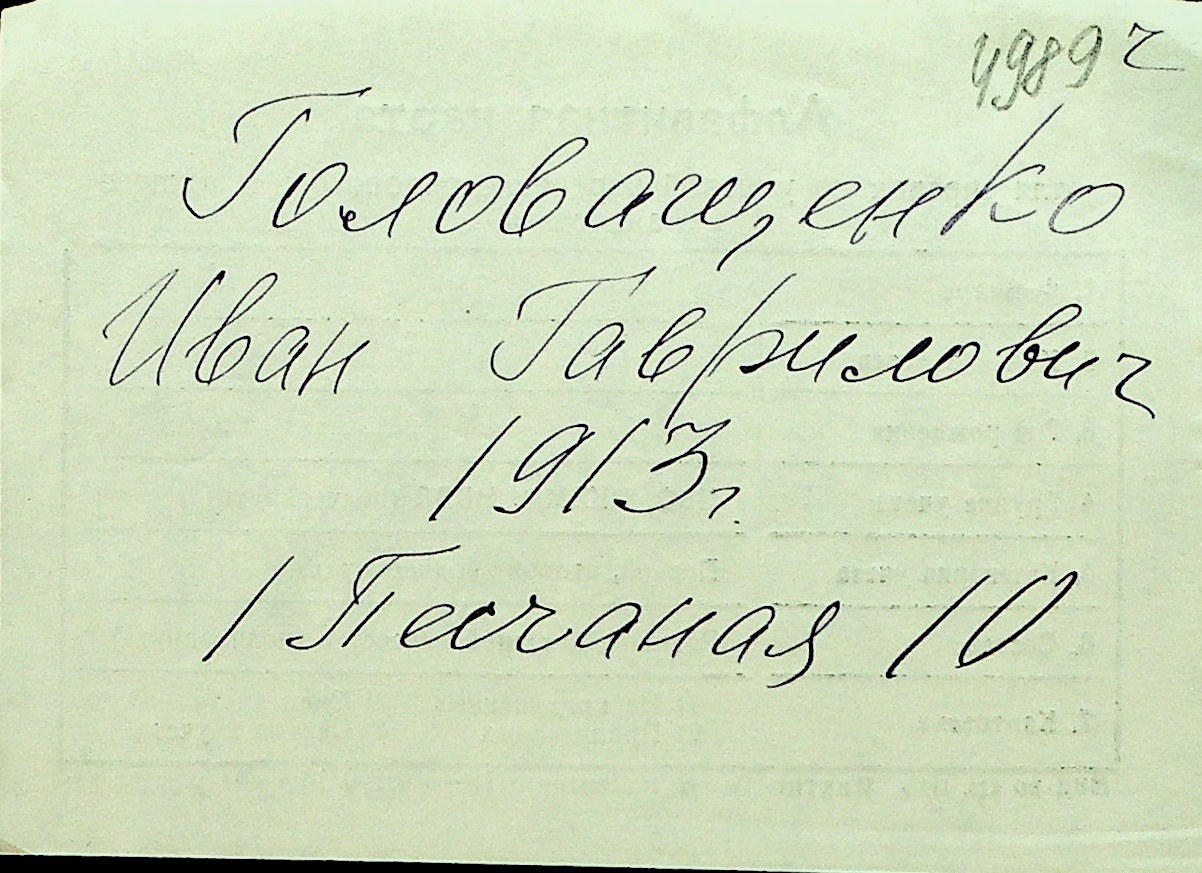 4989 ч
Головащенко
Иван Гаврилович
1913 г.
1 Песчаная 10